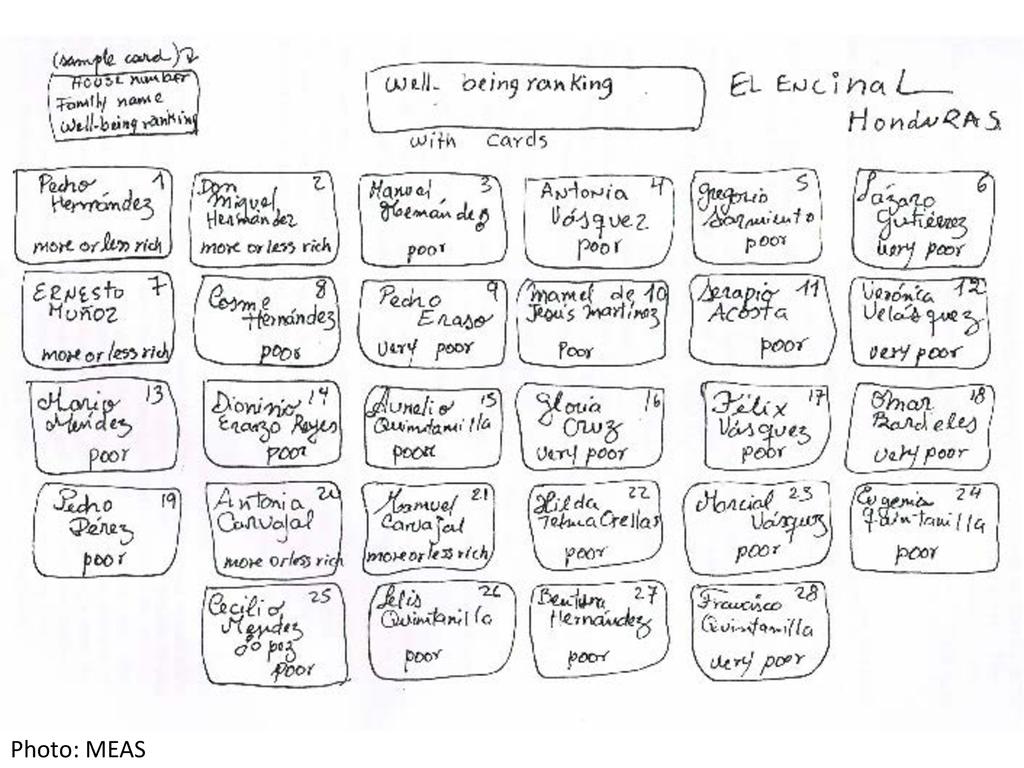 (sample card)
House number
Family name
Well-being ranking
Well-being ranking
with cards
EL ENCINAL
HONDURAS
Pedro 1
Hernández
more or less rich
Don 2
Miguel
Hernández
more or less rich
Manuel 3
Hernández
poor
Antonia 4
Vásquez
poor
Gregorio 5
Sarmiento
poor
Lázaro 6
Gutiérrez
very poor
ERNESTO 7
MUÑOZ
more or less rich
Cosme 8
Hernández
poor
Pedro 9
Eraso
very poor
Mamel de 10
Jesus Martinez
Poor
Serapio 11
Acosta
poor
Verónica 12
Velásquez
very poor
Mario 13
Mendez
poor
Dionisio 14
Eranzo Reyes
poor
Aurelio 15
Quintanilla
poor
Gloria 16
Cruz
very poor
Félix 17
Vásquez
poor
Omar 18
Bardeles
very poor
Pedro 19
Pérez
poor
Antonia 20
Carvajal
more or less rich
Manuel 21
Carvajal
more or less rich
Hilda 22
Telma Crellas
poor
Marcial 23
Vásquez
poor
Eugenia 24
Quintanilla
poor
Cecilio 25
Mendez
López
poor
Lelis 26
Quintanilla
poor
Bentura 27
Hernández
poor
Francisco 28
Quintanilla
very poor
Photo: MEAS